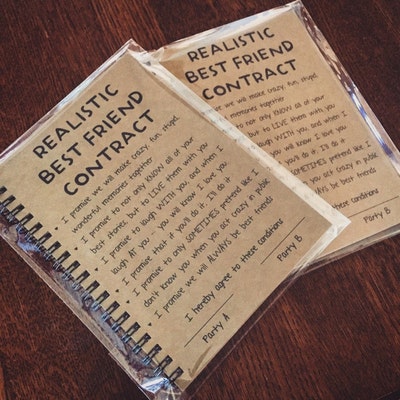 REALISTIC
BEST FRIEND
CONTRACT
• I promise we will make crazy, fun, stupid,
wonderful memories together
• I promise to not only KNOW all of your
best stories but to LIVE them with you
• I promise to laugh WITH you, and when I
laugh AT you - you will know I love you
• I promise if you'll do it, I'll do it
• I promise to only SOMETIMES pretend like I
don't know you when you act crazy in public
• I promise we will ALWAYS be best friends
I hereby agree to these conditions
Party A Party B
REALISTIC
BEST FRIEND
CONTRACT
we will make crazy, fun, stupid,
memories together
to not only KNOW all of your
but to LIVE them with you
laugh WITH you, and when I
you will know I love you
you'll do it, I'll do it
SOMETIMES pretend like I
you act crazy in public
be best friends
these conditions
Party B